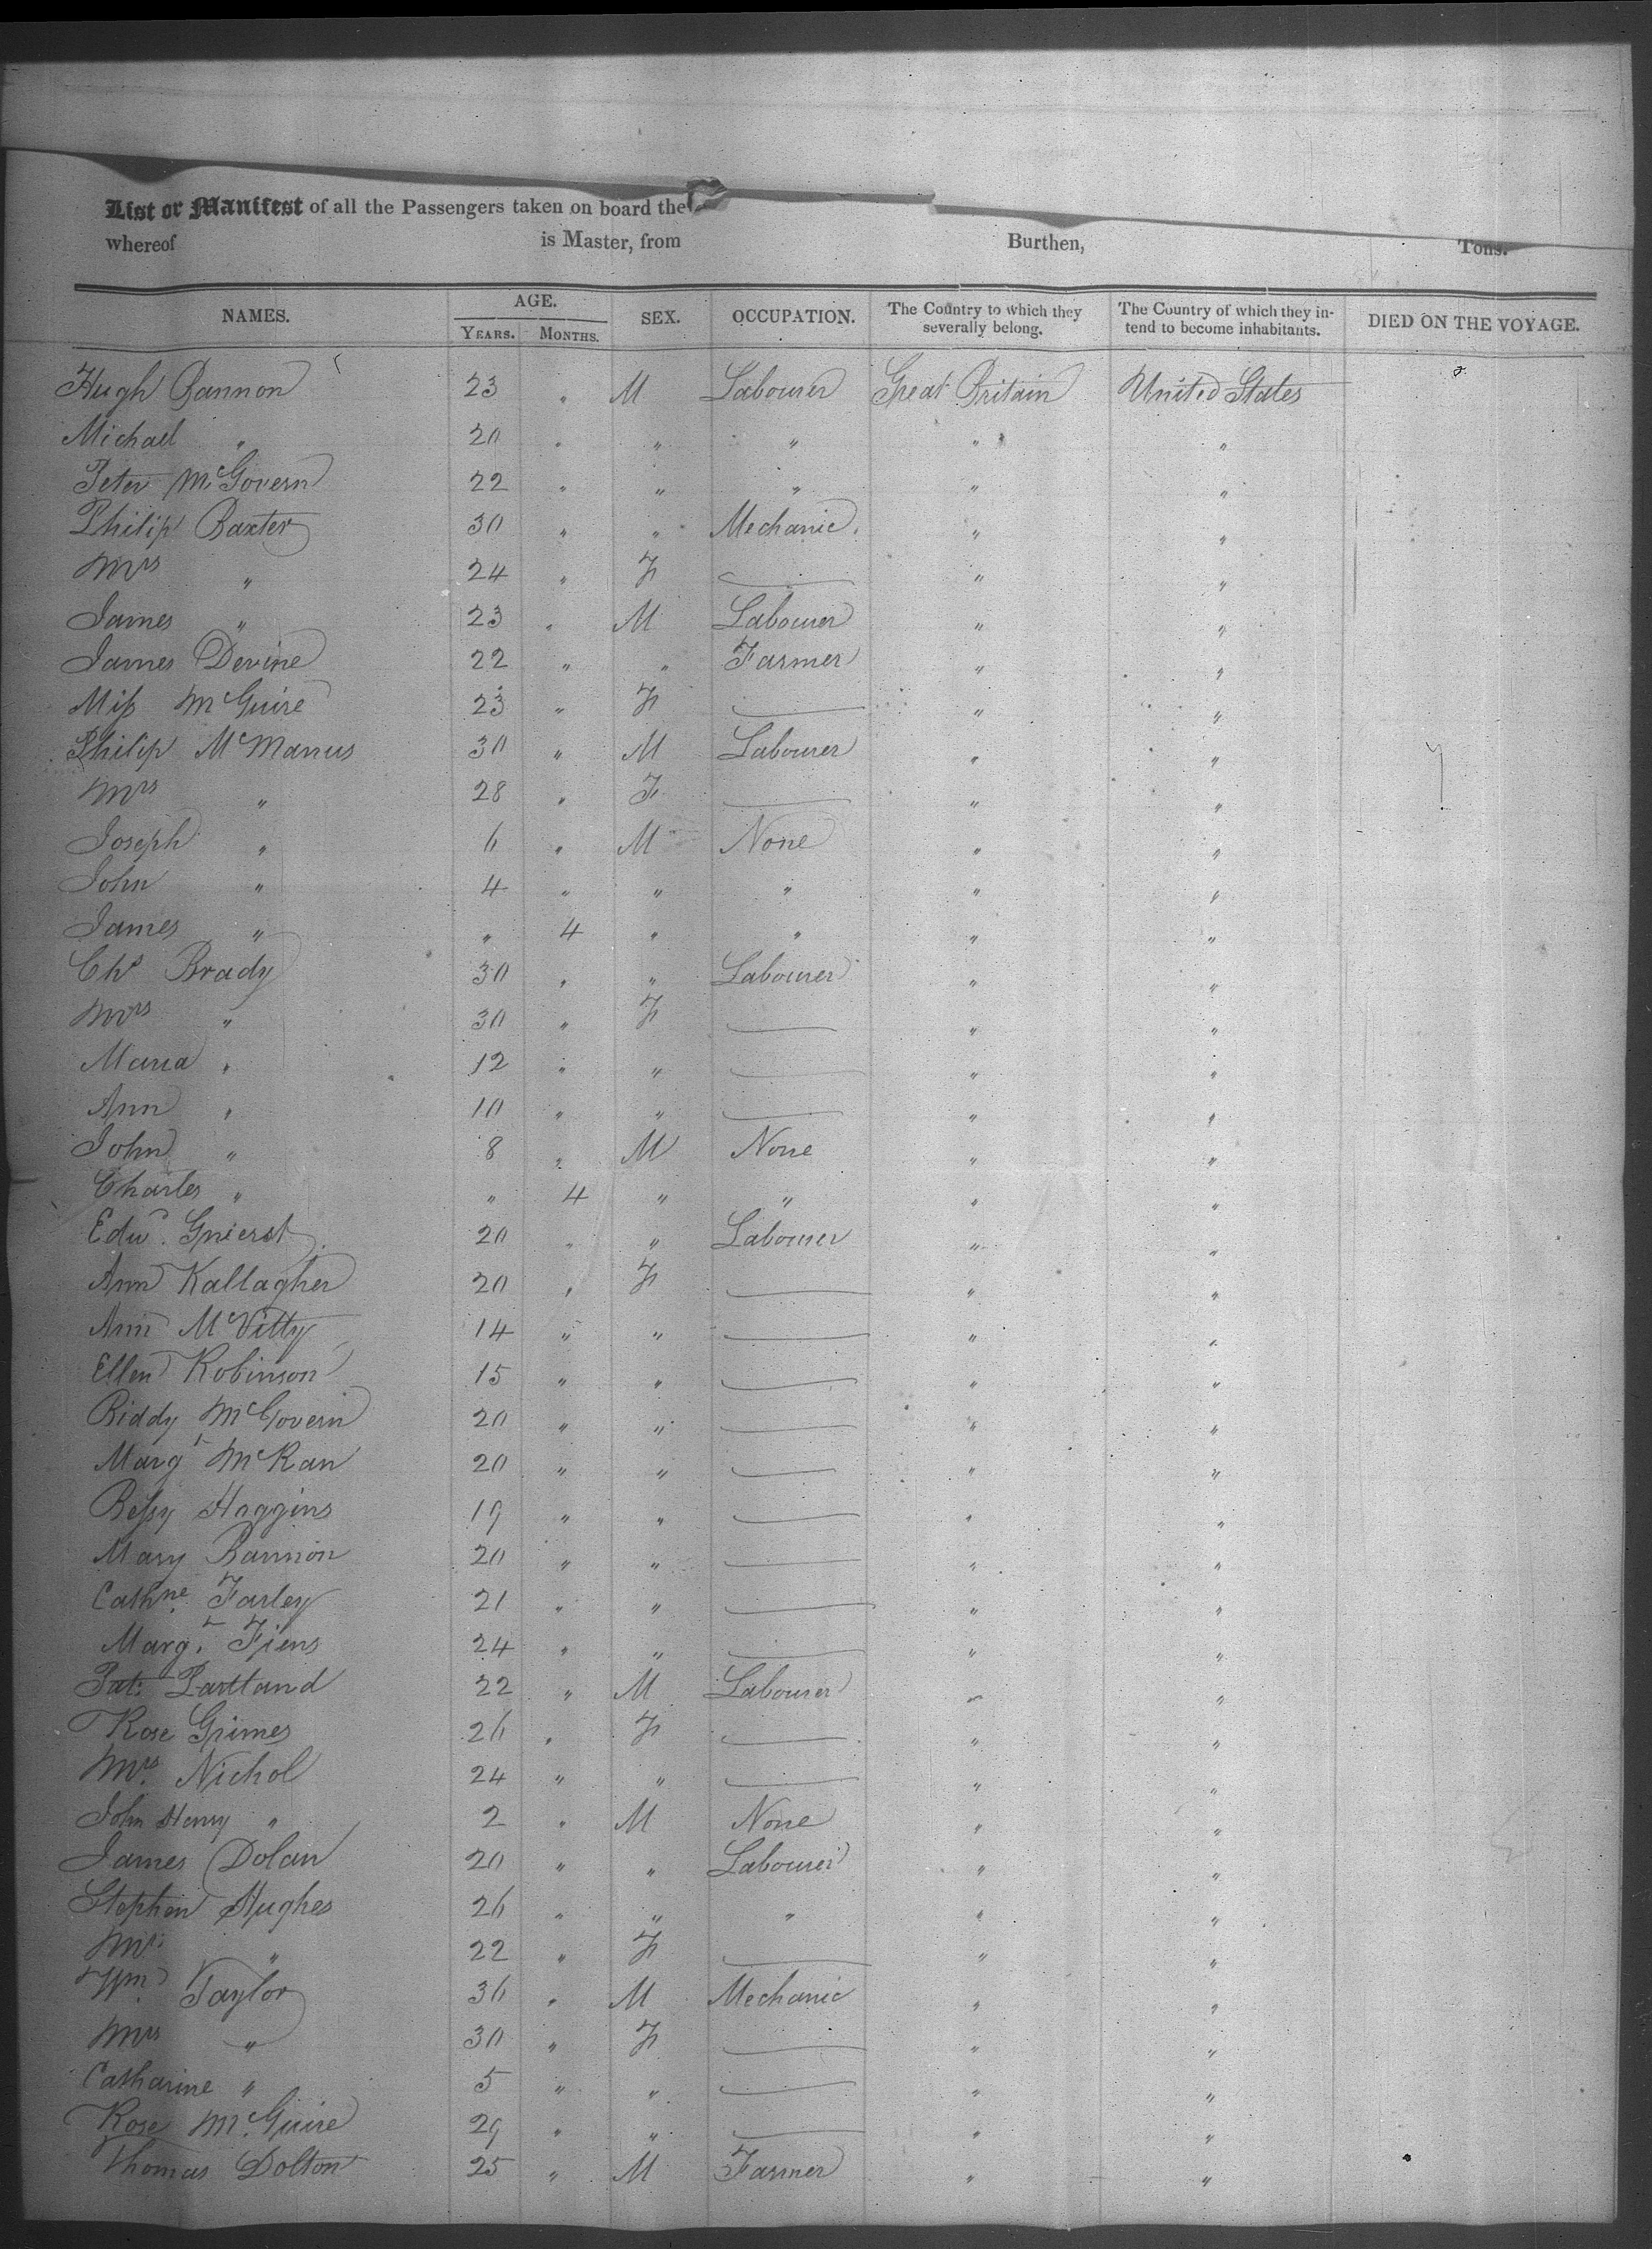 List or Manifest of all the Passengers taken on board the
whereof is Master, from Burthen, Tons.
NAMES. AGE. YEARS. MONTHS. SEX. OCCUPATION. The Country to which they severally belong. The Country of which they intend to become inhabitants. DIED ON THE VOYAGE.
Hugh Bannon 23 " M Labourer Great Britain United States
Michael " 20 " " " " "
Peter McGovern 22 " " " " "
Philip Baxter 30 " " Mechanic " "
Mrs " 24 " F — " "
James " 23 " M Labourer " "
James Devine 22 " " Farmer " "
Miss McGuire 23 " F — " "
Philip McManus 30 " M Labourer " "
Mrs " 28 " F — " "
Joseph " 6 " M None " "
John " 4 " " " " "
James " " 4 " " " "
Chs Brady 30 " " Labourer " "
Mrs " 30 " F — " "
Maria " 12 " " — " "
Ann " 10 " " — " "
John " 8 " M None " "
Charles " " 4 " " " "
Edwd. 20 " " Labourer " "
Ann Kallagher 20 " F — " "
Ann McVitty 14 " " — " "
Ellen Robinson 15 " " — " "
Biddy McGovern 20 " " — " "
Margt McKan 20 " " — " "
Bessy Haggins 19 " " — " "
Mary Bannon 20 " " — " "
Cathne. Farley 21 " " — " "
Margt. 24 " " — " "
Pat: Partland 22 " M Labourer " "
Rose Grimes 26 " F — " "
Mrs. Nichol 24 " " — " "
John Henry " 2 " M None " "
James Dolan 20 " " Labourer " "
Stephen Hughes 26 " " " " "
Mrs " 22 " F — " "
Wm. Taylor 36 " M Mechanic " "
Mrs " 30 " F — " "
Catharine " 5 " " — " "
Rose McGuire 29 " " — " "
Thomas Dolton 25 " M Farmer " "